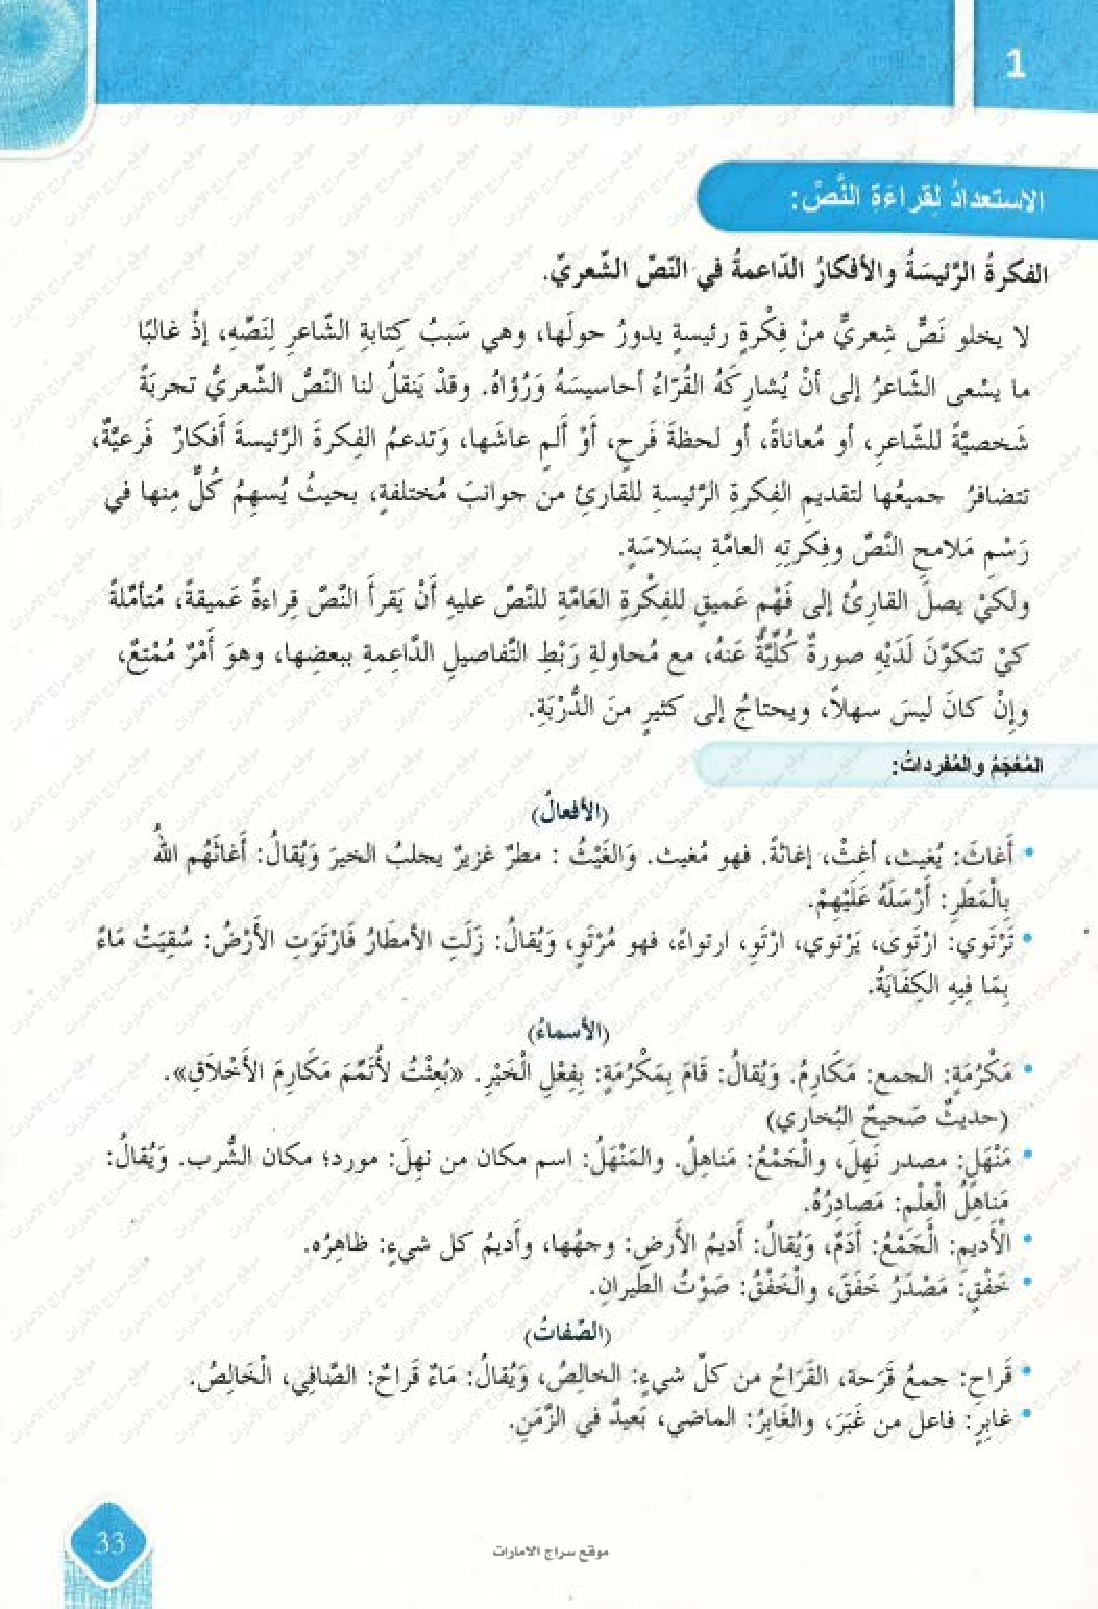 1
الاستعدادُ لِقراءَةِ النَّصِّ:
الفكرةُ الرَّئيسَةُ والأفكارُ الدّاعمةُ في النّصّ الشّعريّ.
لا يخلو نَصٌّ شِعريٌّ منْ فِكْرةٍ رئيسةٍ يدورُ حولَها، وهي سَببُ كِتابةِ الشّاعرِ لِنَصِّهِ، إذْ غالبًا
ما يسْعى الشّاعرُ إلى أنْ يُشارِكَهُ القُرّاءُ أحاسيسَهُ وَرُؤاهُ. وقدْ يَنقلُ لنا النَّصُّ الشّعريُّ تجربَةً
شَخصيَّةً للشّاعرِ، أو مُعاناةً، أو لحظةَ فَرحٍ، أوْ ألمٍ عاشَها، وَتدعمُ الفِكرةَ الرَّئيسةَ أفكارٌ فَرعيَّةٌ،
تتضافرُ جميعُها لتقديمِ الفِكرةِ الرَّئيسةِ للقارئِ من جوانبَ مُختلفةٍ، بحيثُ يُسهِمُ كُلٌّ مِنها في
رَسْمِ مَلامحِ النَّصِّ وفِكرتِهِ العامَّةِ بسَلاسَةٍ.
ولكيْ يصلَ القارِئُ إلى فَهْمٍ عَميقٍ للفِكْرةِ العَامَّةِ للنَّصِّ عليهِ أنْ يَقرأَ النَّصَّ قِراءةً عَميقةً، مُتأمّلةً
كيْ تتكوّنَ لَدَيْهِ صورةٌ كُلِّيَّةٌ عَنهُ، مع مُحاولةِ رَبْطِ التَّفاصيلِ الدّاعمةِ ببعضِها، وهوَ أمْرٌ مُمْتِعٌ،
وإنْ كانَ ليسَ سهلاً، ويحتاجُ إلى كثيرٍ منَ الدُّرْبَةِ.
المُعْجَمُ والمُفرداتُ:
(الأفعالُ)
• أَغاثَ: يُغيث، أغِثْ، إغاثةً. فهو مُغيث. وَالغَيْثُ : مطرٌ غزيرٌ يجلبُ الخيرَ وَيُقالُ: أَغاثَهُم اللهُ
بِالْمَطَرِ: أَرْسَلَهُ عَلَيْهِمْ.
• تَرْتَوي: ارْتَوى، يَرْتوي، ارْتَوِ، ارتواءً، فهو مُرْتَوٍ، وَيُقالُ: نَزَلَتِ الأمطَارُ فَارْتَوَتِ الأَرْضُ: سُقِيَتْ مَاءً
بِمَا فِيهِ الكِفَايَةُ.
(الأسماءُ)
• مَكْرُمَةٍ: الجمع: مَكَارِمُ. وَيُقالُ: قَامَ بِمَكْرُمَةٍ: بِفِعْلِ الْخَيْرِ. «بُعِثْتُ لأُتَمِّمَ مَكَارِمَ الأَخْلاَقِ».
(حديثٌ صَحيحُ البُخاري)
• مَنْهَلٍ: مصدر نَهِلَ، والْجَمْعُ: مَناهِلُ. والمَنْهَلُ: اسم مكان من نهِلَ: مورد؛ مكان الشُّرب. وَيُقالُ:
مَناهِلُ الْعِلْمِ: مَصادِرُهُ.
• الْأَديمِ: الْجَمْعُ: أَدَمٌ، وَيُقالُ: أَديمُ الأَرضِ: وجهُها، وأَديمُ كل شيءٍ: ظاهِرُه.
• خَفْقِ: مَصْدَرُ خَفَقَ، والْخَفْقُ: صَوْتُ الطّيرانِ.
(الصّفاتُ)
• قَراحِ: جمعُ قَرَحة، القَرَاحُ من كلِّ شيءٍ: الخالِصُ، وَيُقالُ: مَاءٌ قَراحٌ: الصّافِي، الْخَالِصُ.
• غابِرٍ: فاعل من غَبَرَ، والغَابِرُ: الماضي، بَعيدٌ في الزَّمَنِ.
33
موقع سراج الامارات